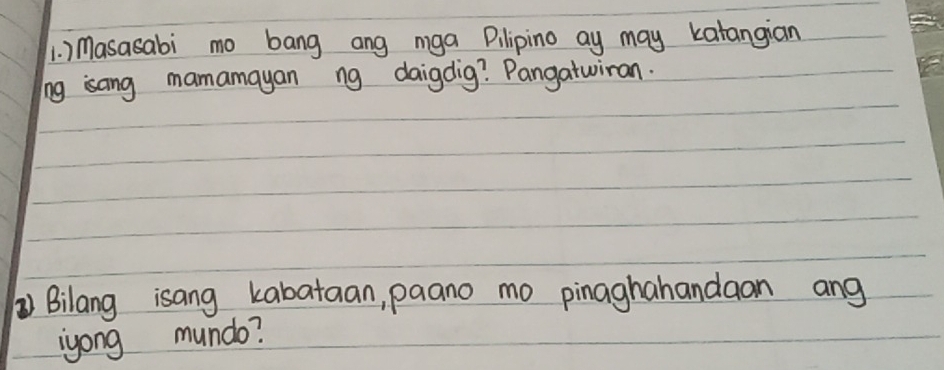 1.) Masasabi mo bang ang mga Pilipino ay may katangian
ng isang mamamayan ng daigdig? Pangatwiran.
2) Bilang isang kabataan, paano mo pinaghahandaan ang
iyong mundo?